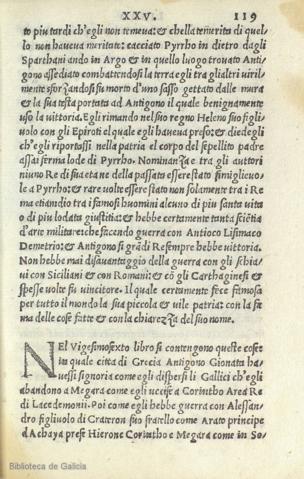 XXV. 119
to piu tardi ch'egli non temeua: & chella temerita di quel-
lo non haueua meritato: cacciato Pyrrho in dietro dagli
Sparthani ando in Argo & in quello luogo trouato Anti-
gono assediato combattendosi la terra egli tra gli altri uiril-
mente sforzandosi fu morto d'uno sasso gettato dalle mura
& la sua testa portata ad Antigono il quale benignamente
uso la uittoria. Egli rimando nel suo regno Heleno suo figli-
uolo con gli Epiroti el quale egli haueua preso: & diedegli
ch'egli riportassi nella patria el corpo del sepellito padre
assai ferma lode di Pyrrho. Nominanza e tra gli auttori
niuno Re di sua eta ne della passata essere stato simigliuo-
le a Pyrrho: & rare uolte essere stato non solamente tra i Re
ma etiandio tra i famosi huomini alcuno di piu santa uita
o di piu lodata giustitia: & hebbe certamente tanta sciētia
d'arte militare: che facendo guerra con Antioco Lisimaco
Demetrio: & Antigono si grādi Re sempre hebbe uittoria.
Non hebbe mai disauantaggio della guerra con gli schia-
ui con Siciliani & con Romani: & cō gli Carthaginesi &
spesse uolte fu uincitore. il quale certamente fece famosa
per tutto il mondo la sua piccola & uile patria: con la fa
ma delle cose fatte & con la chiarezza del suo nome.
NEl Vigesimosexto libro si contengono queste cose:
in quale citta di Grecia Antigono Gionata ha-
uessi signoria come egli dispersi li Gallici ch'egli
abandono a Megara come egli uccise a Corintho Area Re
di Lacedemonii. Poi come egli hebbe guerra con Alessan-
dro figliuolo di Crateron suo fratello come Arato principe
d Achaya prese Hierone Corintho & Megara come in So-
Biblioteca de Galicia